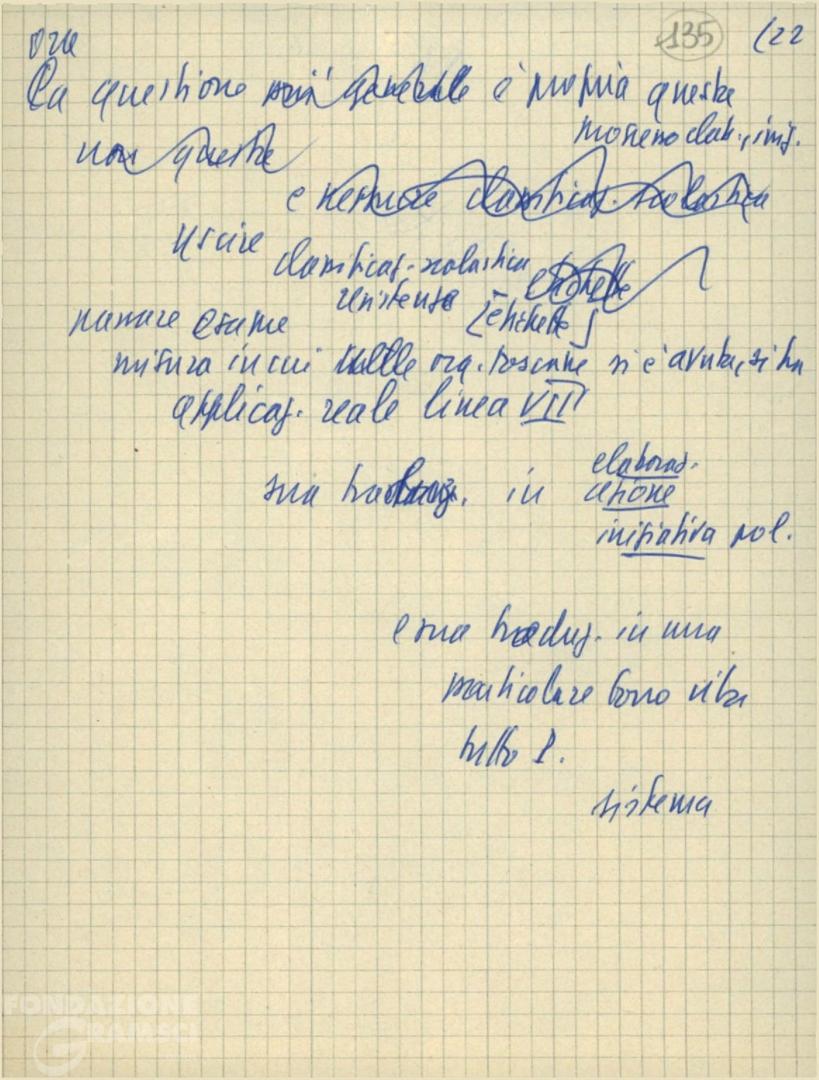 135 (22
ora
La questione più generale è propria questa
non queste
e nessuna classificaz. scolastica
uscire classificaz. scolastica
resistenze etichette
passare esame [etichette]
misura in cui nelle org. toscane si è avuta, si ha
applicaz. reale linea VIII
sua traduz. in elaboraz.
azione
iniziativa pol.
e sua traduz. in una
particolare tono vita
tutto P.
sistema
FONDAZIONE
GRAMSCI